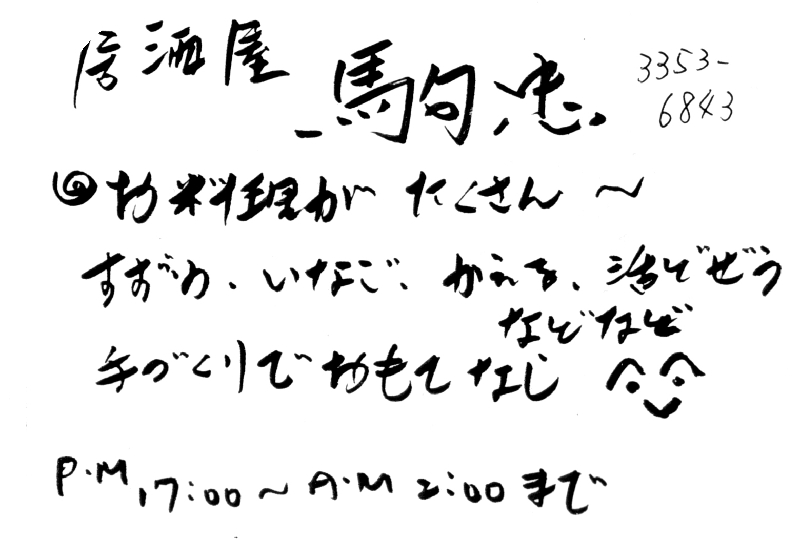 居酒屋
駒忠
3353-
6843
◎お料理がたくさん〜
すずめ、いなご、かえる、活どぜう
などなど
手づくりでおもてなし
P.M 17:00〜A.M 2:00まで